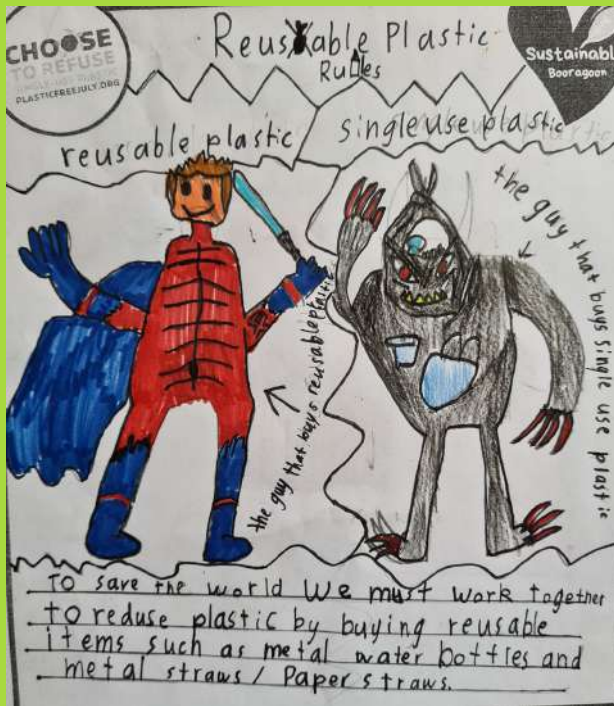 CHOOSE
TO REFUSE
SINGLE-USE PLASTIC
PLASTICFREEJULY.ORG
Reusable Plastic
Rules
Sustainable
Booragoon
reusable plastic
single use plastic
the guy that buys reusable plastic
the guy that buys single use plastic
TO save the world We must work together
to reduse plastic by buying reusable
items such as metal water bottles and
metal straws / Paper straws.